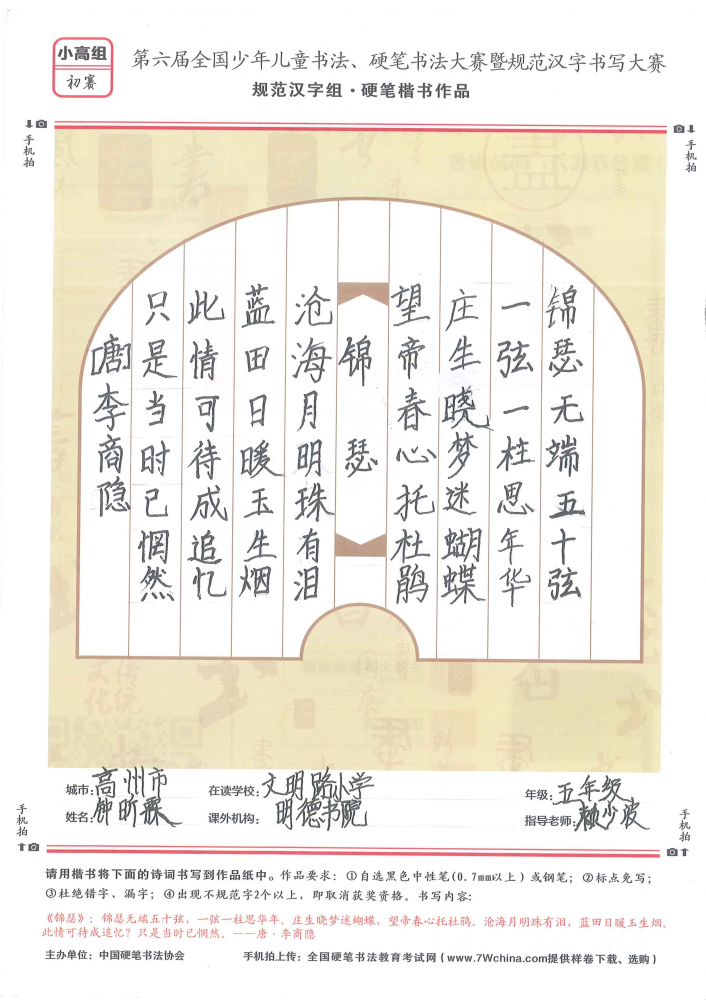 小高组
初赛
第六届全国少年儿童书法、硬笔书法大赛暨规范汉字书写大赛
规范汉字组·硬笔楷书作品
手机拍
手机拍
锦瑟无端五十弦
一弦一柱思年华
庄生晓梦迷蝴蝶
望帝春心托杜鹃
锦瑟
沧海月明珠有泪
蓝田日暖玉生烟
此情可待成追忆
只是当时已惘然
[唐]李商隐
城市:高州市
在读学校:文明路小学
年级:五年级
姓名:钟昕霖
课外机构:明德书院
指导老师:赖少波
手机拍
手机拍
请用楷书将下面的诗词书写到作品纸中。作品要求:①自选黑色中性笔(0.7mm以上)或钢笔;②标点免写;
③杜绝错字、漏字;④出现不规范字2个以上,即取消获奖资格。书写内容:
《锦瑟》:锦瑟无端五十弦,一弦一柱思华年。庄生晓梦迷蝴蝶,望帝春心托杜鹃。沧海月明珠有泪,蓝田日暖玉生烟。
此情可待成追忆?只是当时已惘然。——唐·李商隐
主办单位:中国硬笔书法协会
手机拍上传:全国硬笔书法教育考试网(www.7Wchina.com提供样卷下载、选购)